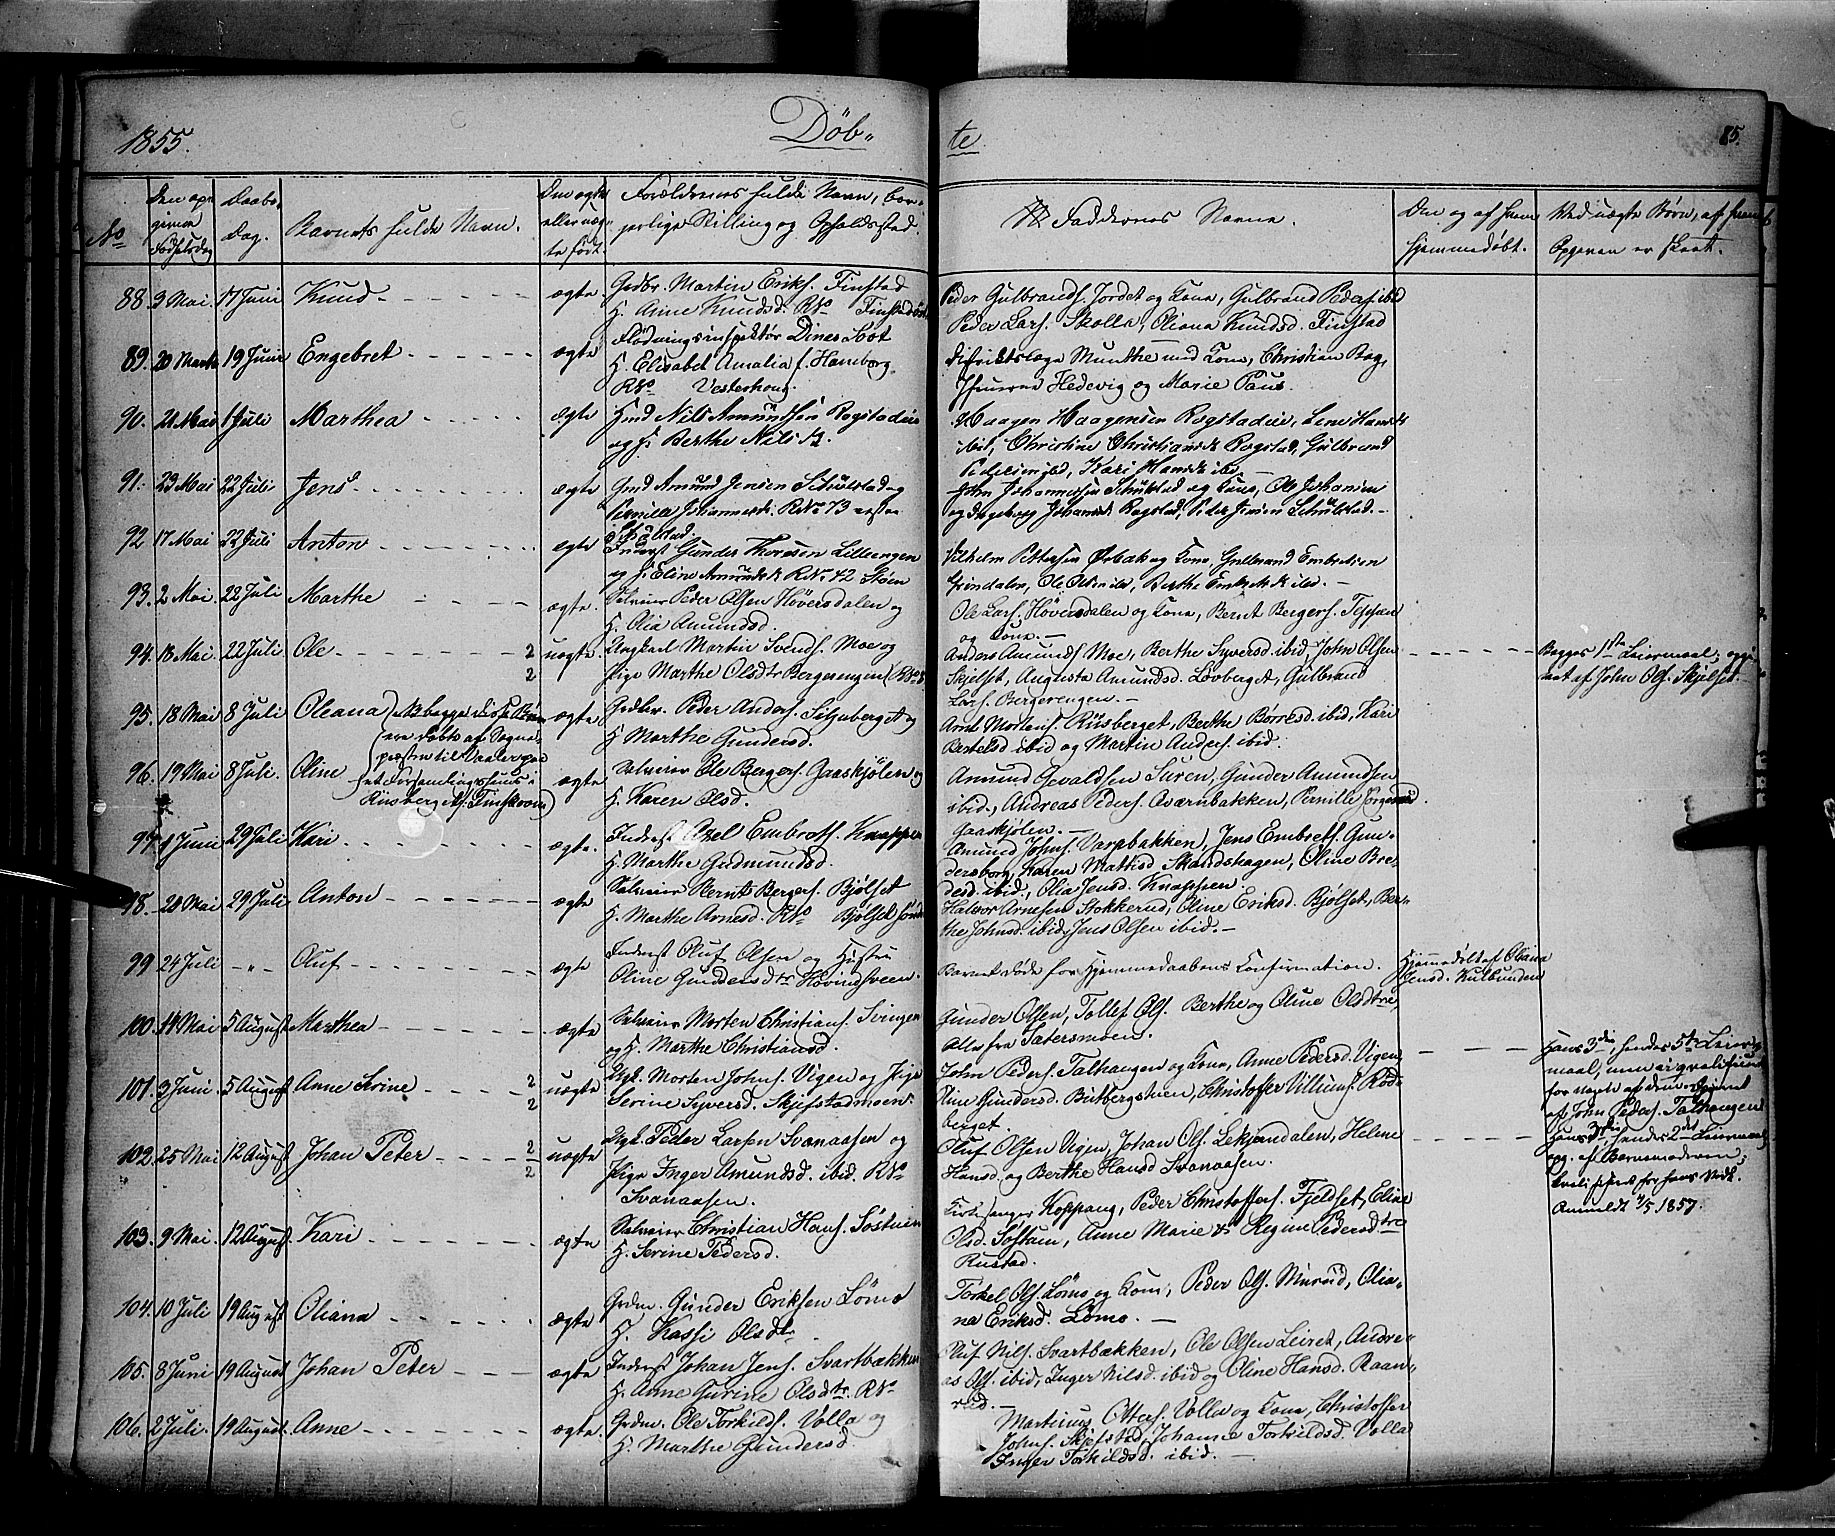 1855.
Døb-
te
85.
No
Den op-
givne
Fødselsdag
Daabs-
dag.
Barnets fulde Navn.
Om ægte
eller uæg-
te født.
Forældrenes fulde Navn, bor-
gerlige Stilling og Opholdssted.
Faddernes Navne.
Om og af hvem
hjemmedøbt.
Ved uægte Børn, af hvem
Opgaven er skeet.
88 3 Mai 17 Juni Knud ægte Gdbr. Martin Eriks. Finstad
H. Anne Knudsd. RNo Finstad
Peder Gulbrands. Jordet og Kone, Gulbrand Peders. ibid
Peder Lars. Skolla, Oliana Knudsd. Finstad
89. 20 Marts 19 Juni Engebret ægte Flødningsinspektør Dines Soot
H. Elisabet Amalia f. Hamborg
RNo Vesterhoug.
Distriktslæge Munthe med Kone, Christian
Hedevig og Marie Paus.
90. 21 Mai 1 Juli Marthea ægte Hmd Nils Amundsen Rogstadeie
og H. Berthe Nilsd.
Haagen Haagensen Rogstadeie, Lene Hansd
ibid, Christine Christiansd. Rogstad, Gulbrand
Pedersen ibd, Kari Hansd. ibd.
91. 23 Mai 22 Juli Jens ægte Gmd Amund Jensen Schülstad og
Pernille Johannesd. RNo 73
John Johannessen Schülstad og Kone, Ole Johansen
og Ingeborg Johansd. Rogstad, Peder Jensen Schülstad.
92 17 Mai 22 Juli Anton ægte Inderst Gunder Thoresen Lilleengen
og H. Eline Amundsd. RNo 42 Støen
Vilhelm Pettersen Ørbæk og Kone, Gulbrand Embretsen
Grindalen, Ole Olsen ibd, Berthe Embretsd. ibd.
93. 2 Mai 22 Juli Marthe ægte. Selveier Peder Olsen Høversdalen og
H. Olia Amundsd.
Ole Lars. Høversdalen og Kone, Bernt Bergers. Teppen
og Kone.
94. 18 Mai 22 Juli Ole 2/2 uægte. Ungkarl Martin Svends. Moe og
Pige Marthe Olsdtr Bergerengen (RNo
Anders Amunds Moe, Berthe Syversd ibid, John Olsen
Skjelset, Augusta Amundsd. Løvberget, Gulbrand
Lars. Bergerengen.
Begges 1ste Leiermaal; opgi-
vet af John Ols. Skjelset.
95. 18 Mai 8 Juli Oleana (NB begge disse Børn
ere døbte af Sogne-
præsten til Vaaler paa
et Forsamlingshuus i
Riisberget Finskoven)
ægte Gdbr. Peder Anders. Siljuberget og
H Marthe Gundersd.
Arnt Mortens. Riisberget, Berthe Børresd. ibid, Kari
Bertelsd ibid og Martin Anders. ibid.
96. 19 Mai 8 Juli. Oline ægte Selveier Ole Bergers. Gaaskjølen og
H. Karen Olsd.
Amund Gevaldsen Suren, Gunder Amundsen
ibid., Andreas Peders. Qværnbakken, Pernille
Gaaskjølen.
97. 1 Juni 29 Juli Kari ægte. Inderst Axel Embrets. Knappen
H. Marthe Gudmundsd.
Amund Johns. Varpbakken, Jens Embrets. Gun-
dersborg, Karen Mathisd Skandshagen, Oline Bre-
desd. ibid, Olia Jensd. Knappen.
98. 20 Mai 29 Juli. Anton ægte Selveier Bernt Bergers. Bjølset
H. Marthe Arnesd. RNo Bjølset
Halvor Arnesen Stokkerud, Oline Eriksd. Bjølset, Ber-
the Johnsd. ibid, Jens Olsen ibid.
99 24 Juli - " - Oluf ægte Inderst Oluf Olsen og Hustru
Oline Gundersdtr Hovindsveen.
Barnet døde før Hjemmedaabens Confirmation.
Hjemmedøbt af Oliana
Jensd. Kulbunden
100. 14 Mai 5 August Marthea ægte Selveier Morten Christians. Svingen
og H. Marthe Christiansd.
Gunder Olsen, Tollef Ols. Berthe og Oline Olsdtre,
alle fra Satersmoen.
101. 3 Juni 5 August Anne Serine 2/2 uægte Ungk. Morten Johns. Vigen og Pige
Serine Syversd. Skjefstadmoen.
John Peders. Talhaugen og Kone, Anne Pedersd. Vigen,
Gundersd. Butbergsveen, Christoffer Villiums. Rød-
berget.
Hans 3die, hendes 5te Leier-
maal; men ei qvalificeret
for nogen af dem. Opgivet
af John Peders. Talhaugen
102. 25 Mai 12 August Johan Peter 2/2 uægte Ungk. Peder Larsen Svenaasen og
Pige Inger Amundsd. ibid. RNo
Svenaasen.
Oluf Olsen Vigen, Johan Ols. Lekjendalen, Helene
Hansd. og Berthe Hansd Svenaasen.
Hans 3die, hendes 2det Leiermaal,
opg. af Barnemoderen;
for hans Vedk.
Anmeldt 4/5 1857.
103. 9 Mai. 12 August Kari ægte Selveier Christian Hans. Søstuen
H. Serine Pedersd.
Koppang, Peder Christoffers. Fjeldset, Eline
Olsd. Søstuen, Anne Marie & Regine Pedersdtre
Rustad.
104. 10 Juli 19 August Oliana ægte Grdm. Gunder Eriksen Lømo
H. Kassi Olsdtr.
Torkel Ols. Lømo og Kone, Peder Ols. Murud, Olia-
na Eriksd. Lømo.
105. 8 Juni 19 August Johan Peter ægte Inderst Johan Jens. Svartbækken
H. Anne Turine Olsdtr. RNo
Oluf Nils. Svartbækken, Ole Olsen Leiret, Andre-
as Ols. ibid, Inger Nilsd. ibid og Oline Hansd. Raan-
rud.
106. 2 Juli. 19 August. Anne ægte. Grdm. Ole Torkilds. Volla og
H. Marthe Gundersd
Martinus Otters. Volla og Kone, Christoffer
Johns. Skjefstad, Johanne Torkildsd. Volla
Inger Torkildsd. ibid.